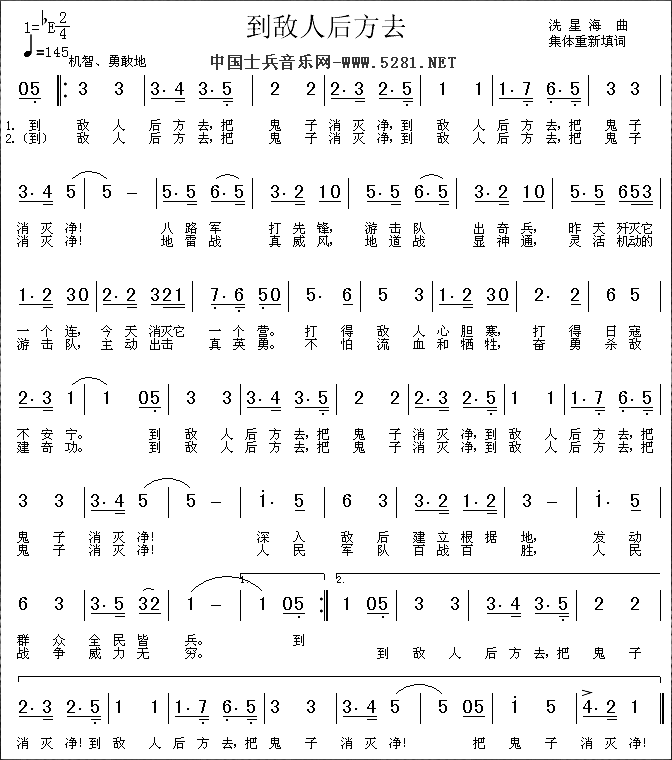 到敌人后方去
1=♭E 2/4
♩=145
机智、勇敢地
洗 星 海 曲
集体重新填词
中国士兵音乐网-WWW.5281.NET
05 ‖: 3 3 | 3·4 3·5 | 2 2 | 2·3 2·3 | 1 1 | 1·7 6·5 | 3 3 |
1. 到 敌 人 后 方 去,把 鬼 子 消 灭 净,到 敌 人 后 方 去,把 鬼 子
2.(到) 敌 人 后 方 去,把 鬼 子 消 灭 净,到 敌 人 后 方 去,把 鬼 子
3·4 5 | 5 – | 5·5 6·5 | 3·2 10 | 5·5 6·5 | 3·2 10 | 5·5 653 |
消 灭 净! 八 路 军 打 先 锋, 游 击 队 出 奇 兵, 昨 天 歼灭它
消 灭 净! 地 雷 战 真 威 风, 地 道 战 显 神 通, 灵 活 机动的
1·2 30 | 2·2 321 | 7·6 50 | 5· 6 | 5 3 | 1·3 20 | 2· 2 | 6 5 |
一 个 连, 今 天 消灭它 一 个 营。 打 得 敌 人 心 胆 寒, 打 得 日 寇
游 击 队, 主 动 出 击 真 英 勇。 不 怕 流 血 和 牺 牲, 奋 勇 杀 敌
2·3 1 | 1 05 | 3 3 | 3·4 3·5 | 2 2 | 2·3 2·5 | 1 1 | 1·7 6·5 |
不 安 宁。 到 敌 人 后 方 去,把 鬼 子 消 灭 净,到 敌 人 后 方 去,把
建 奇 功。 到 敌 人 后 方 去,把 鬼 子 消 灭 净,到 敌 人 后 方 去,把
3 3 | 3·4 5 | 5 – | i· 5 | 6 3 | 2·1 1·2 | 3 – | i· 5 |
鬼 子 消 灭 净! 深 入 敌 后 建 立 根 据 地, 发 动
鬼 子 消 灭 净! 人 民 军 队 百 战 百 胜, 人 民
6 3 | 3·5 32 | 1 – | 1. 1 05 :‖ 2. 1 05 | 3 3 | 3·4 3·5 | 2 2 |
群 众 全 民 皆 兵。 到
战 争 威 力 无 穷。 到 敌 人 后 方 去,把 鬼 子
2·3 2·5 | 1 1 | 1·7 6·5 | 3 3 | 3·4 5 | 5 05 | i 5 | 4·2 1 ‖
消 灭 净!到 敌 人 后 方 去,把 鬼 子 消 灭 净! 把 鬼 子 消 灭 净!